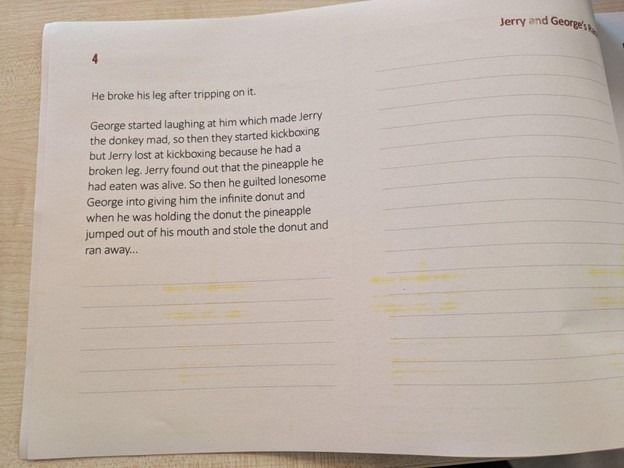 Jerry and George's
4
He broke his leg after tripping on it.
George started laughing at him which made Jerry
the donkey mad, so then they started kickboxing
but Jerry lost at kickboxing because he had a
broken leg. Jerry found out that the pineapple he
had eaten was alive. So then he guilted lonesome
George into giving him the infinite donut and
when he was holding the donut the pineapple
jumped out of his mouth and stole the donut and
ran away...